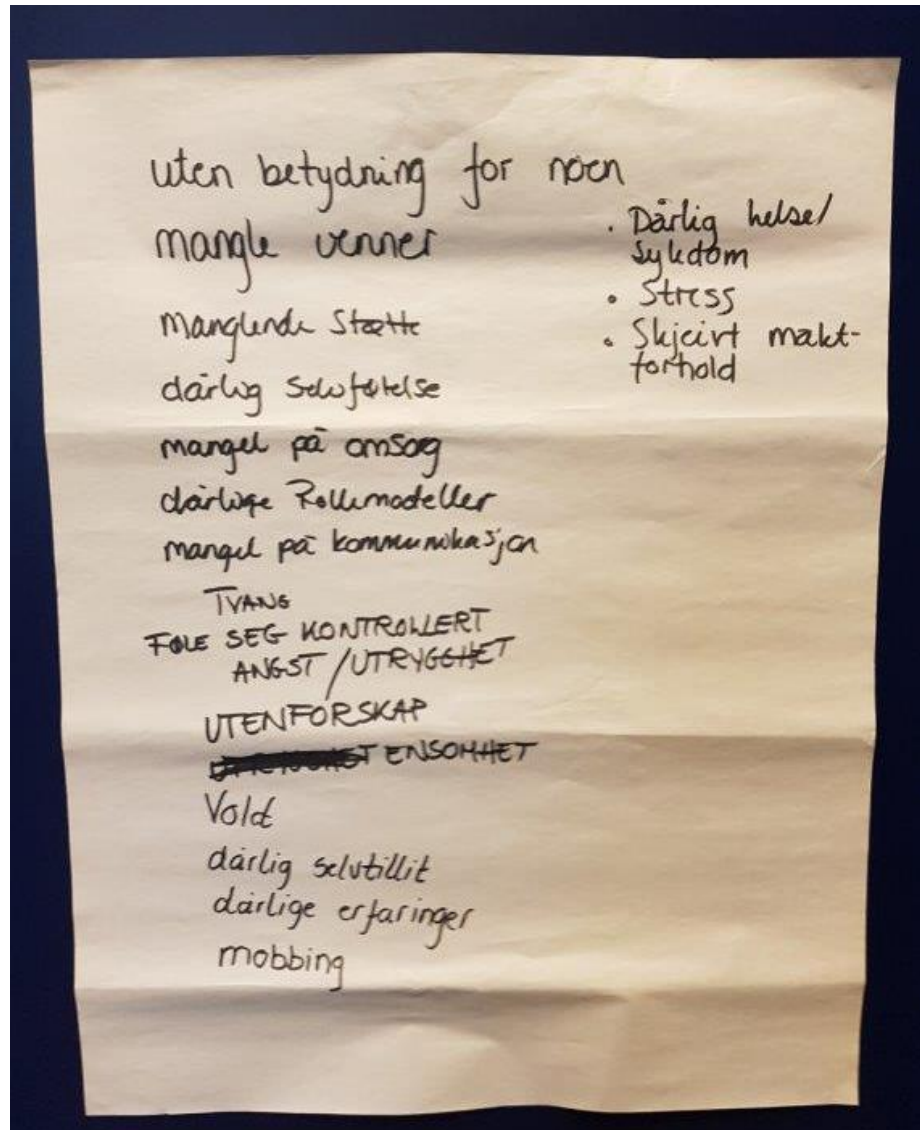 uten betydning for noen
mangle venner
Manglende Støtte
dårlig Selvfølelse
mangel på omsorg
dårlige Rollemodeller
mangel på kommunikasjon
TVANG
FØLE SEG KONTROLLERT
ANGST / UTRYGGHET
UTENFORSKAP
ENSOMHET
Vold
dårlig selvtillit
dårlige erfaringer
mobbing
• Dårlig helse/
sykdom
• Stress
• Skjeivt makt-
forhold